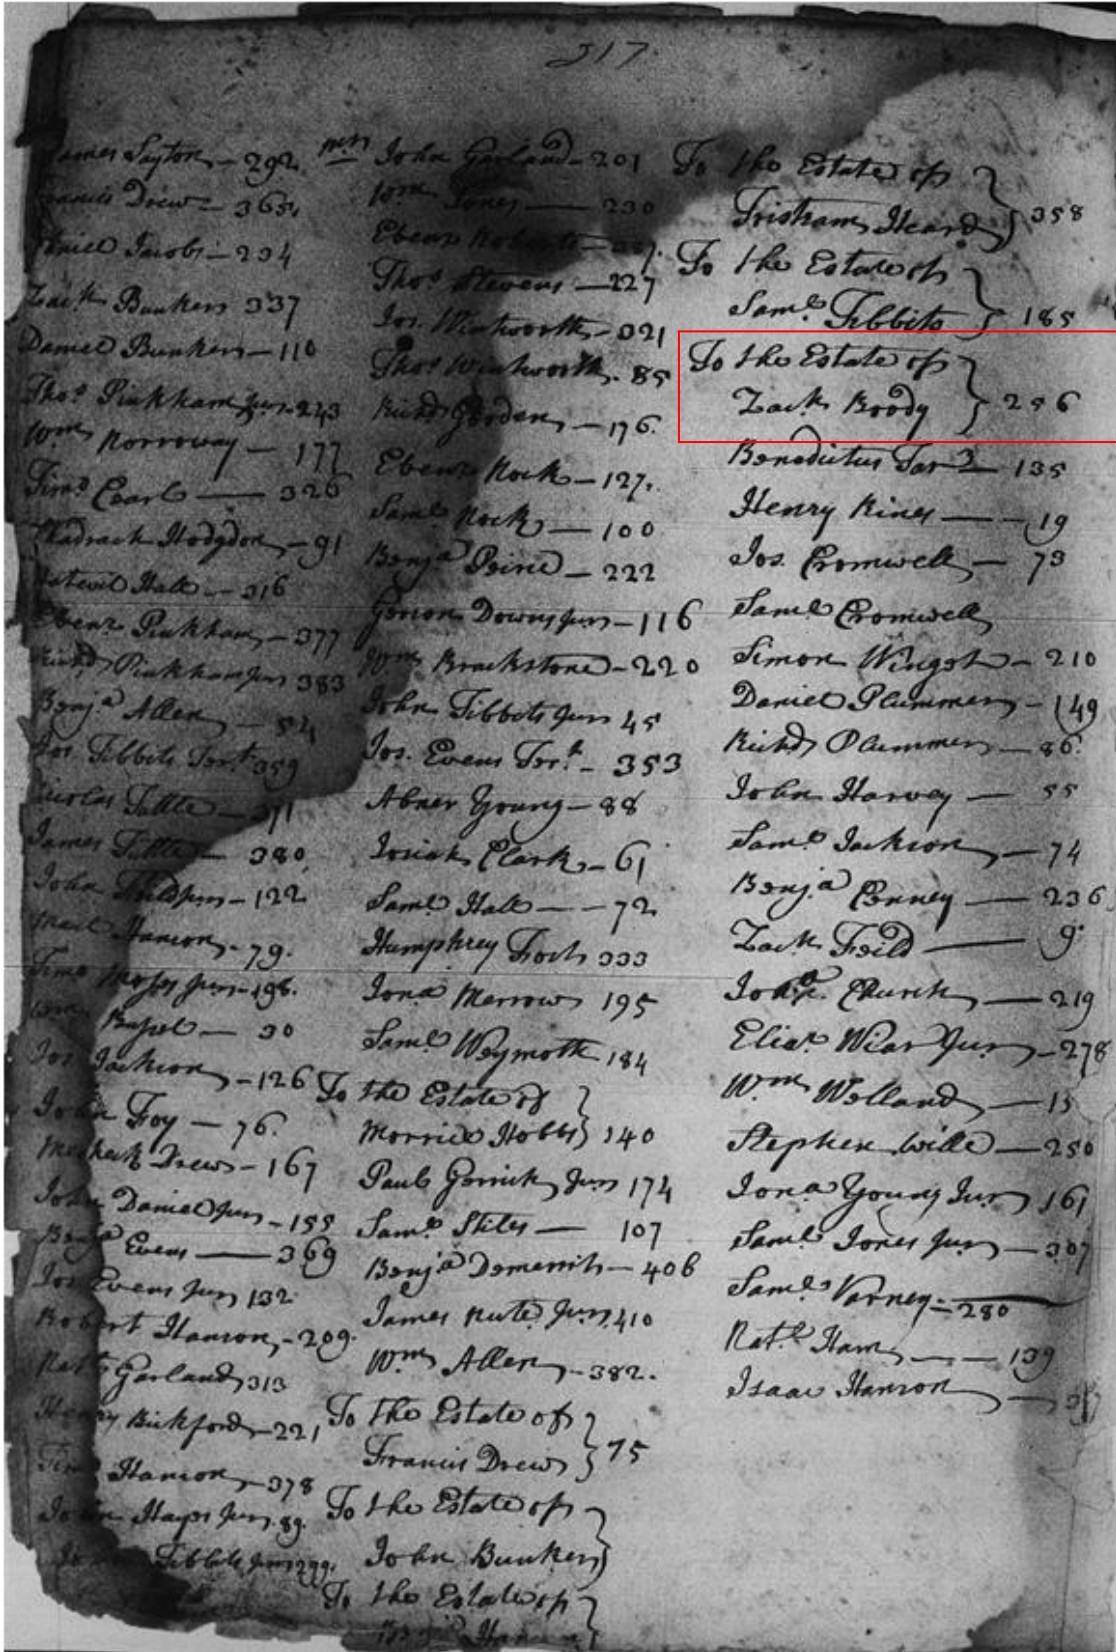 317
James Layton - 292
Francis Drew - 365
Daniel Jacobs - 234
Zach Bunker 337
Daniel Bunker - 110
Thos Pinkham Junr 243
Wm Norroway - 177
Timo Pearl - 326
Shadrach Hodgdon - 91
Hatevil Hall - 316
Ebenr Pinkham - 377
Richd Pinkham Junr 383
Benja Allen - 54
Jos. Tibbits Tert 359
Nicolas Tuttle
James Tuttle - 380
John Feild Junr - 122
Hanson - 79.
Timo Moses Junr - 196.
Wm Bussel - 30
Jos Jackson - 126
John Foy - 76.
Meshech Drew - 167
John Daniel Junr - 155
Benja Evens - 369
Jos Evens Junr 132
Robert Hanson - 209.
Natl Garland 313
Henry Bickford - 221
Timo Hanson - 378
John Hayes Junr 89.
Tibbits Junr 299.
mtr John Garland - 201
Wm Jones - 230
Ebenr Roberts
Thos Stevens - 227
Jos. Wentworth - 321
Thos Wentworth - 85
Richd Gooden - 176.
Ebenr Nock - 127.
Saml Nock - 100
Benja Peirce - 222
Gorson Downs Junr - 116
Wm Brackstone - 220
John Tibbits Junr 45
Jos. Evens Tert - 353
Abner Young - 88
Josiah Clark - 61
Saml Hall - 72
Humphrey Foch 333
Jona Merrow 195
Saml Weymoth 184
To the Estate of
Morrice Hobbs } 140
Paul Gerrish Junr 174
Saml Stiles - 107
Benja Demerrit - 406
James Nute Junr 410
Wm Allen - 382.
To the Estate of
Francis Drew } 75
To the Estate of
John Bunker }
To the Estate of
To the Estate of
Tristram Heard } 358
To the Estate of
Saml Tibbits } 185
To the Estate of
Zach Boody } 256
Benedictus Tar - 135
Henry Rines - 19
Jos. Cromwell - 73
Saml Cromwell
Simon Wingat - 210
Daniel Plummer - 149
Richd Plummer - 86.
John Harvey - 55
Saml Jackson - 74
Benja Penney - 236
Zach Feild - 9
Church - 219
Eliar Wiar Junr - 278
Wm Welland - 15
Stephen Wille - 250
Jona Young Jur 161
Saml Jones Junr - 307
Saml Varney - 280
Natl Ham - 139
Isaac Hanson